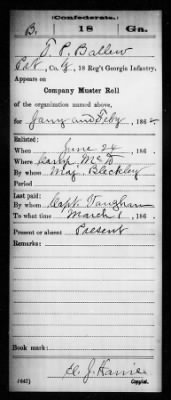 Confederate.
B. 18 Ga.
T. P. Ballew
Co. G, 18 Reg't Georgia Infantry.
Appears on
Company Muster Roll
of the organization named above,
for Jany and Feby, 186
Enlisted:
When June 24, 186
Where Camp McD
By whom Maj. Bleckley
Period
Last paid:
By whom Capt. Vaughan
To what time March 1, 186
Present or absent Present
Remarks:
Book mark:
(642)
Copyist.